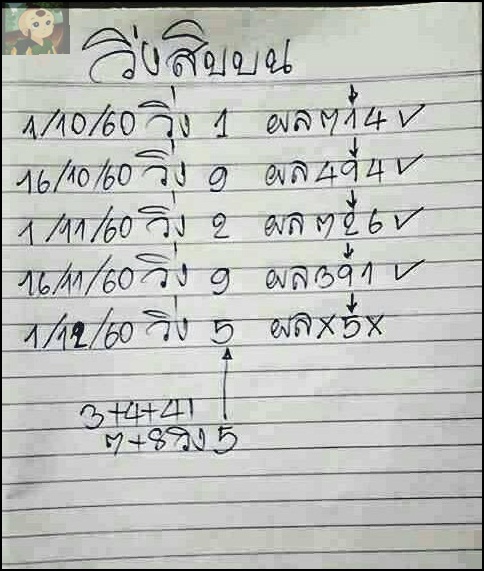 วิ่งสิบบน
1/10/60 วิ่ง 1 ผล 714 ✓
16/10/60 วิ่ง 9 ผล 494 ✓
1/11/60 วิ่ง 2 ผล 726 ✓
16/11/60 วิ่ง 9 ผล 391 ✓
1/12/60 วิ่ง 5 ผล x5x
3+4+41
7+8 วิ่ง 5